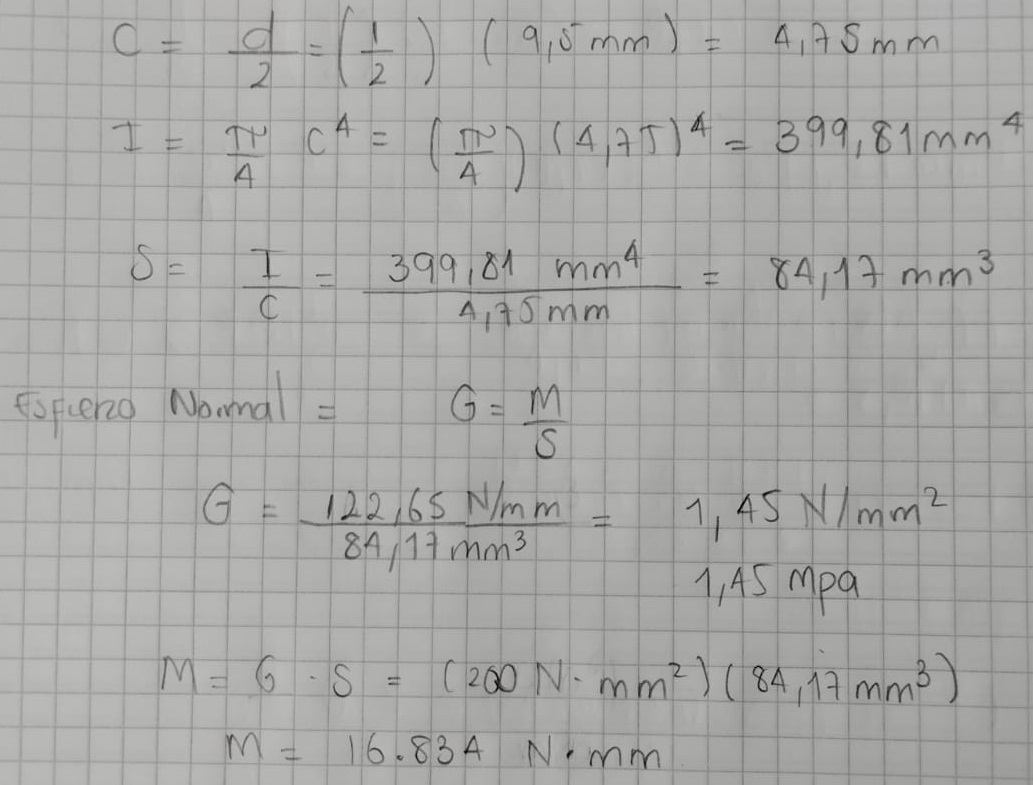 C = d/2 = (1/2) (9,5 mm) = 4,75 mm
I = π/4 C⁴ = (π/4) (4,75)⁴ = 399,81 mm⁴
S = I/C = 399,81 mm⁴ / 4,75 mm = 84,17 mm³
Esfuerzo Normal = G = M/S
G = 122,65 N/mm / 84,17 mm³ = 1,45 N/mm²
1,45 mpa
M = G · S = (200 N · mm²) (84,17 mm³)
M = 16.834 N · mm